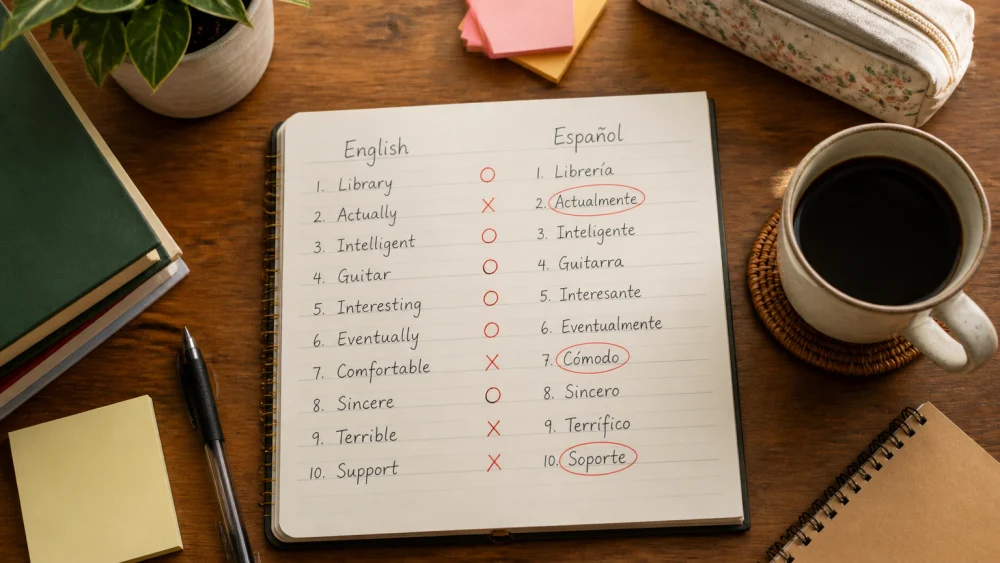 English Español
1. Library O 1. Librería
2. Actually X 2. Actualmente
3. Intelligent O 3. Inteligente
4. Guitar O 4. Guitarra
5. Interesting O 5. Interesante
6. Eventually O 6. Eventualmente
7. Comfortable X 7. Cómodo
8. Sincere O 8. Sincero
9. Terrible X 9. Terrífico
10. Support X 10. Soporte